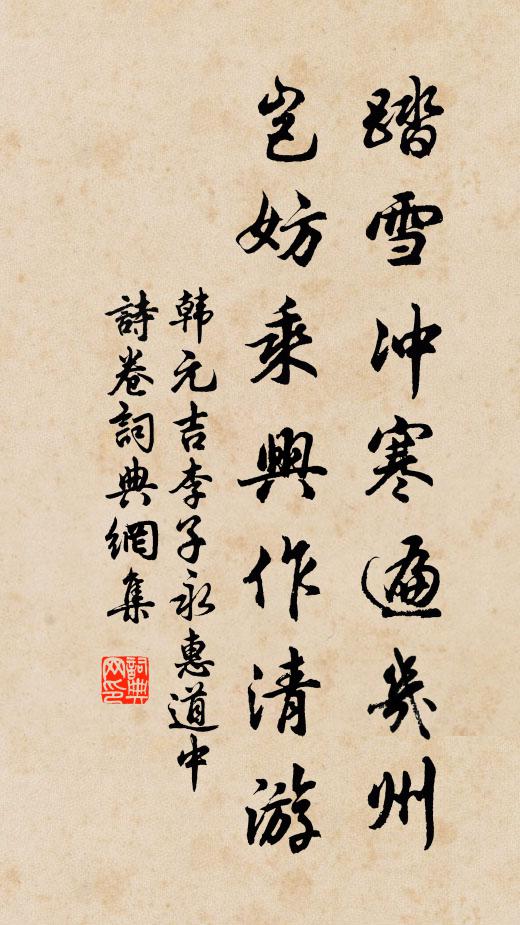 踏雪冲寒遍幾州
豈妨乘興作清游
韩元吉李子永惠道中
詩卷詞典網集
詞典网印